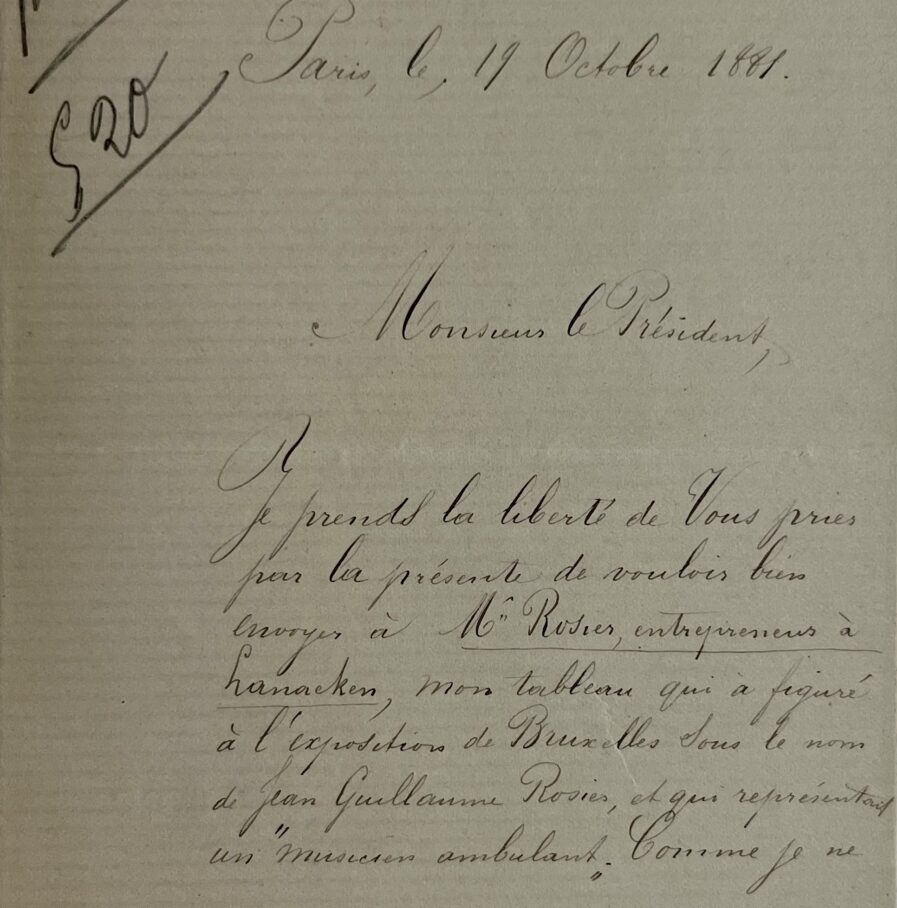 520
Paris, le, 19 Octobre 1881.
Monsieur le Président,
Je prends la liberté de Vous prier
par la présente de vouloir bien
envoyer à Mr Rosier, entrepreneur à
Lanaeken, mon tableau qui a figuré
à l'exposition de Bruxelles sous le nom
de Jean Guillaume Rosier, et qui représentait
un "musicien ambulant". Comme je ne